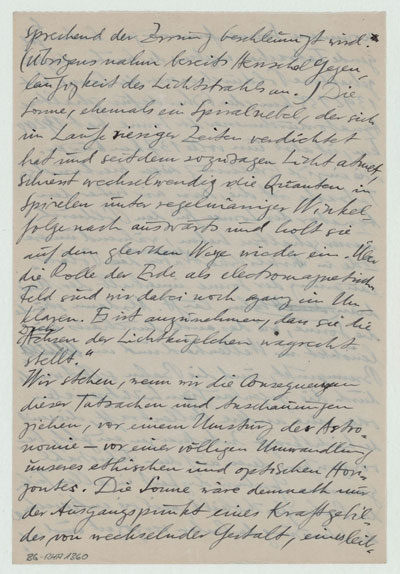 sprechend der Zerrung beschleunigt wird.*
(Übrigens nahm bereits Henschel Gegen-
läufigkeit des Lichtstrahls an.) Die
Sonne, ehemals ein Spiralnebel, der sich
im Laufe riesiger Zeiten verdichtet
hat und seitdem sozusagen Licht atmet,
schiesst wechselwendig die Quanten in
Spiralen unter regelmässiger Winkel-
folge nach auswärts und holt sie
auf dem gleichen Wege wieder ein. Über
die Rolle der Erde als electromagnetisches
Feld sind wir dabei noch ganz im Un-
klaren. Es ist anzunehmen, dass sie die
Achsen der Lichtkügelchen wagrecht
stellt."
Wir stehen, wenn wir die Consequenzen
dieser Tatsachen und Anschauungen
ziehen, vor einem Umsturz der Astro-
nomie – vor einer völligen Umwandlung
unseres ethischen und optischen Hori-
zontes. Die Sonne wäre demnach nur
der Ausgangspunkt eines Kraftgebil-
des von wechselnder Gestalt, eines leit-
BG-RHA 1360